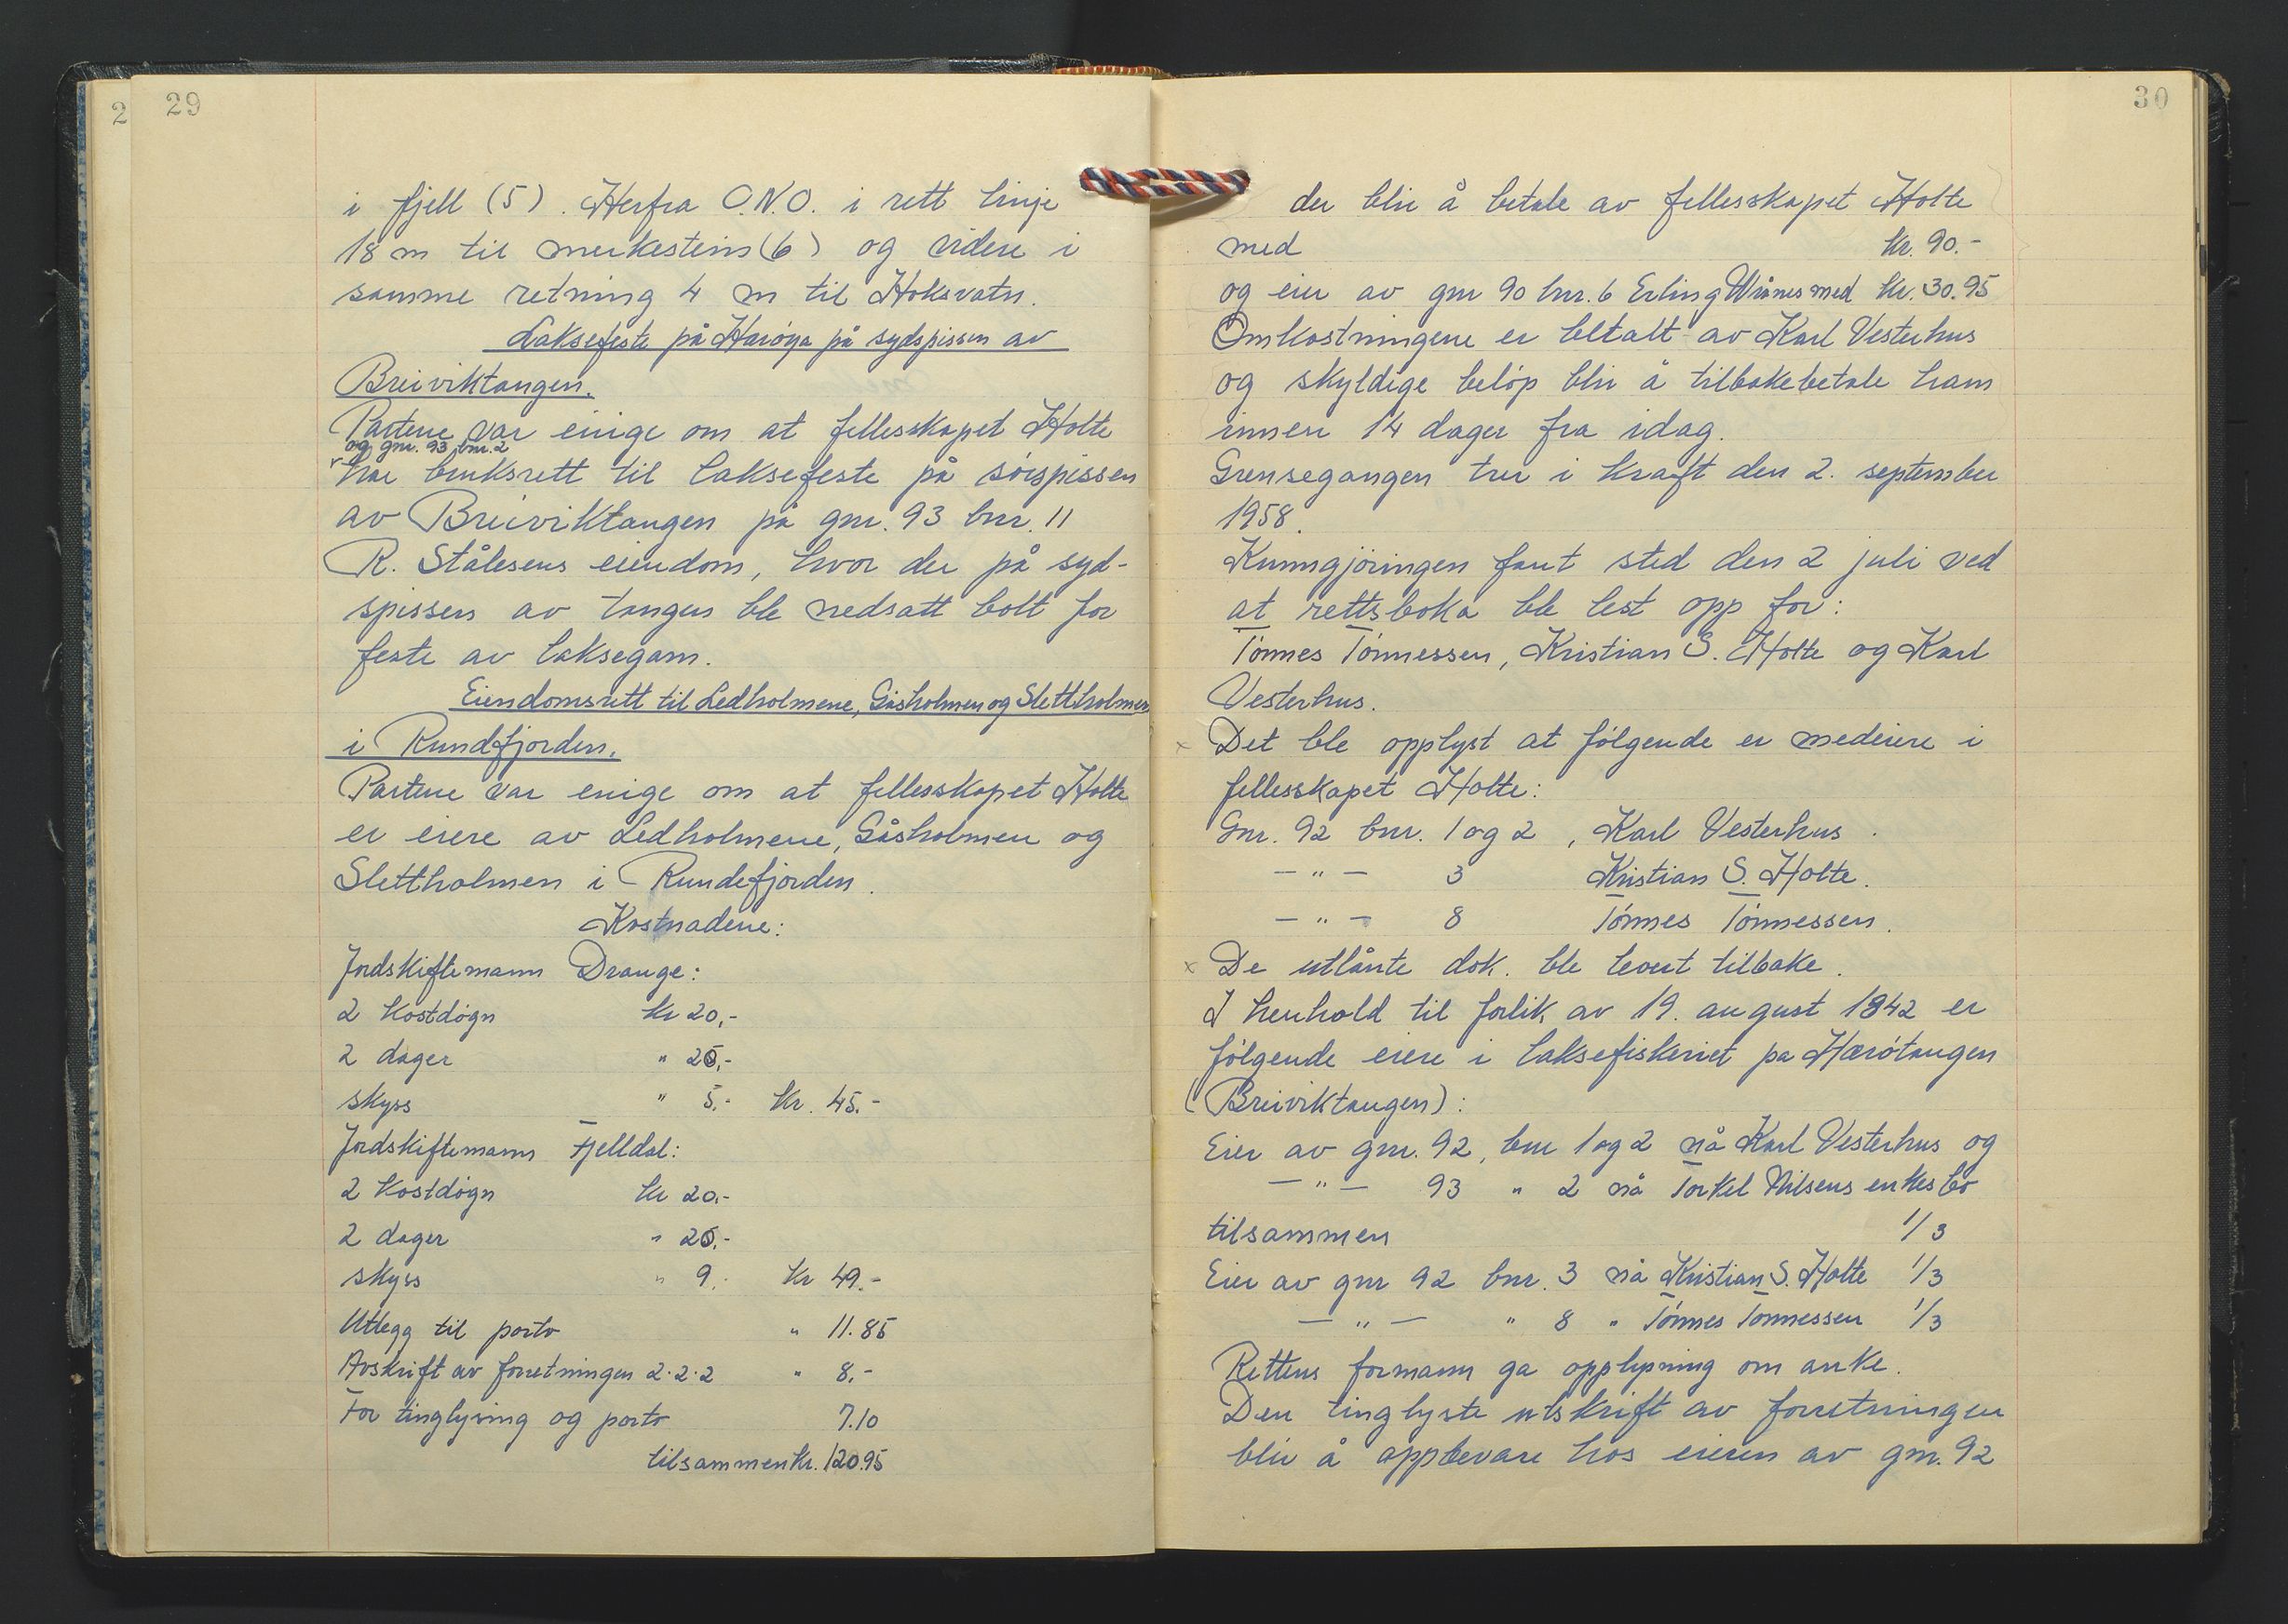 2 29
i fjell (5). Herfra O.N.O. i rett linje
18 m til merkestein (6) og videre i
samme retning 4 m til Hoksvatn.
Laksefeste på Harøya på sydspissen av
Breiviktangen.
Partene var enige om at fellesskapet Holte
og gnr. 93 bnr. 2
har bruksrett til laksefeste på sørspissen
av Breiviktangen på gnr. 93 bnr. 11
R. Stålesens eiendom, hvor der på syd-
spissen av tangen ble nedsatt bolt for
feste av laksegarn.
Eiendomsrett til Ledholmene, Gåsholmen og Slettholmen
i Rundefjorden.
Partene var enige om at fellesskapet Holte
er eiere av Ledholmene, Gåsholmen og
Slettholmen i Rundefjorden.
Kostnadene:
Jordskiftemann Drange:
2 kostdøgn kr 20,-
2 dager " 20,-
skyss " 5.- kr. 45.-
Jordskiftemann Fjelldal:
2 kostdøgn kr 20.-
2 dager " 20.-
skyss " 9.- kr 49.-
Utlegg til porto " 11.85
Avskrift av forretningen 2·2·2 " 8.-
For tinglysing og porto 7.10
tilsammen kr. 120.95
30
der blir å betale av fellesskapet Holte
med kr. 90.-
og eier av gnr 90 bnr. 6 Erling Urånes med kr. 30.95
Omkostningene er betalt av Karl Vesterhus
og skyldige beløp blir å tilbakebetale ham
innen 14 dager fra idag.
Grensegangen trer i kraft den 2. september
1958.
Kunngjøringen fant sted den 2 juli ved
at rettsboka ble lest opp for:
Tønnes Tønnessen, Kristian S. Holte og Karl
Vesterhus.
x Det ble opplyst at følgende er medeiere i
fellesskapet Holte:
Gnr. 92 bnr. 1 og 2, Karl Vesterhus.
— " — 3 Kristian S. Holte.
— " — 8 Tønnes Tønnessen.
x De utlånte dok. ble levert tilbake.
I henhold til forlik av 19. august 1842 er
følgende eiere i laksefiskeriet på Harøtangen
(Breiviktangen):
Eier av gnr. 92, bnr 1 og 2 nå Karl Vesterhus og
— " — 93 " 2 nå Torkel Nilsens enkes bo
tilsammen 1/3
Eier av gnr 92 bnr. 3 nå Kristian S. Holte 1/3
— " — " 8 " Tønnes Tønnessen 1/3
Rettens formann ga opplysning om anke.
Den tinglyste utskrift av forretningen
blir å oppbevare hos eieren av gnr. 92